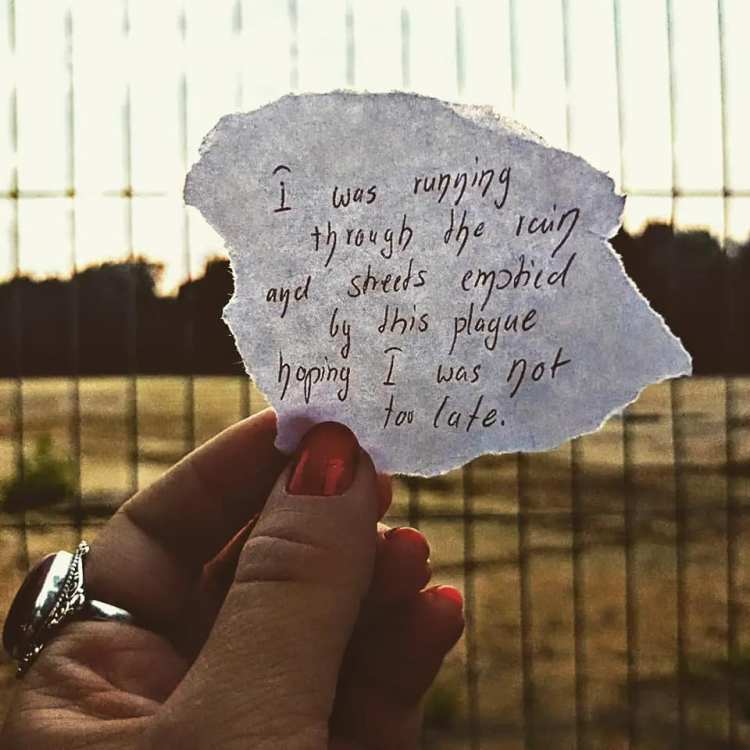 I was running
through the rain
and streets emptied
by this plague
hoping I was not
too late.